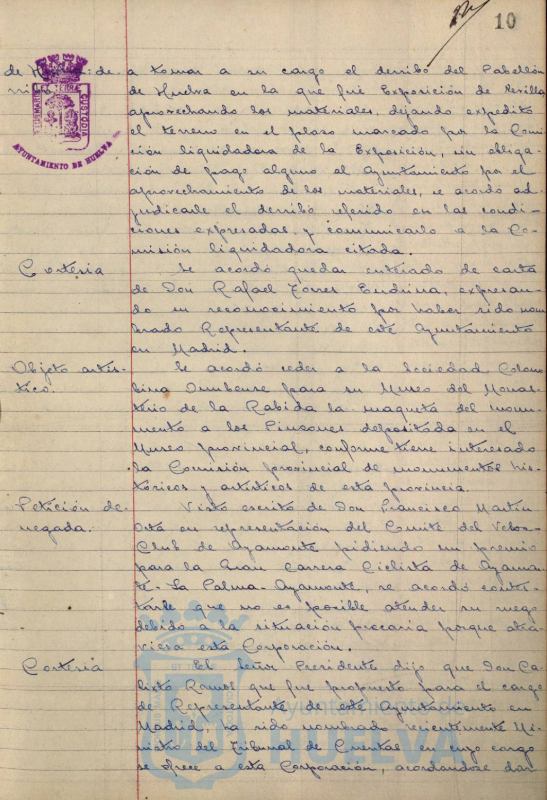 10
de Huelva: de- a tomar a su cargo el derribo del Pabellón
rribo de Huelva en la que fué Exposición de Sevilla
aprovechando los materiales, dejando expedito
el terreno en el plazo marcado por la Comi
sión liquidadora de la Exposición, sin obliga
ción de pago alguno al Ayuntamiento por el
aprovechamiento de los materiales, se acordó ad-
judicarle el derribo referido en las condi-
ciones expresadas y comunicarlo a la Co-
misión liquidadora citada.
AYUNTAMIENTO DE HUELVA
Cortesia Se acordó quedar enterado de carta
de Don Rafael Torres Endrina, expresan-
do su reconocimiento por haber sido nom
brado Representante de este Ayuntamiento
en Madrid.
Objeto artís- Se acordó ceder a la Sociedad Colom
tico. bina Onubense para su Museo del Monas-
terio de la Rabida la maqueta del monu-
mento a los Pinzones depositada en el
Museo provincial, conforme tiene interesado
la Comisión provincial de monumentos his-
tóricos y artísticos de esta provincia.
Petición de- Visto escrito de Don Francisco Martin
negada. Orta en representación del Comité del Veloz-
Club de Ayamonte pidiendo un premio
para la Gran Carrera Ciclista de Ayamon-
te-La Palma-Ayamonte, se acordó contes-
tarle que no es posible atender su ruego
debido a la situación precaria porque atra-
viesa esta Corporación.
Cortesia El Señor Presidente dijo que Don Ca-
lixto que fue propuesto para el cargo
de Representante de este Ayuntamiento en
Madrid, ha sido nombrado recientemente Mi-
nistro del Tribunal de Cuentas en cuyo cargo
se ofrece a esta Corporación, acordandose dar
Ayuntamiento de
HUELVA